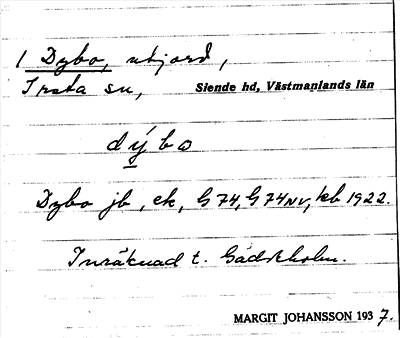 1 Dybo, utjord,
Irsta sn, Siende hd, Västmanlands län
dýbo
Dybo jb, ek, G 74, G 74 NV, kb 1922.
Inräknad t. Gädeholm.
MARGIT JOHANSSON 1937.